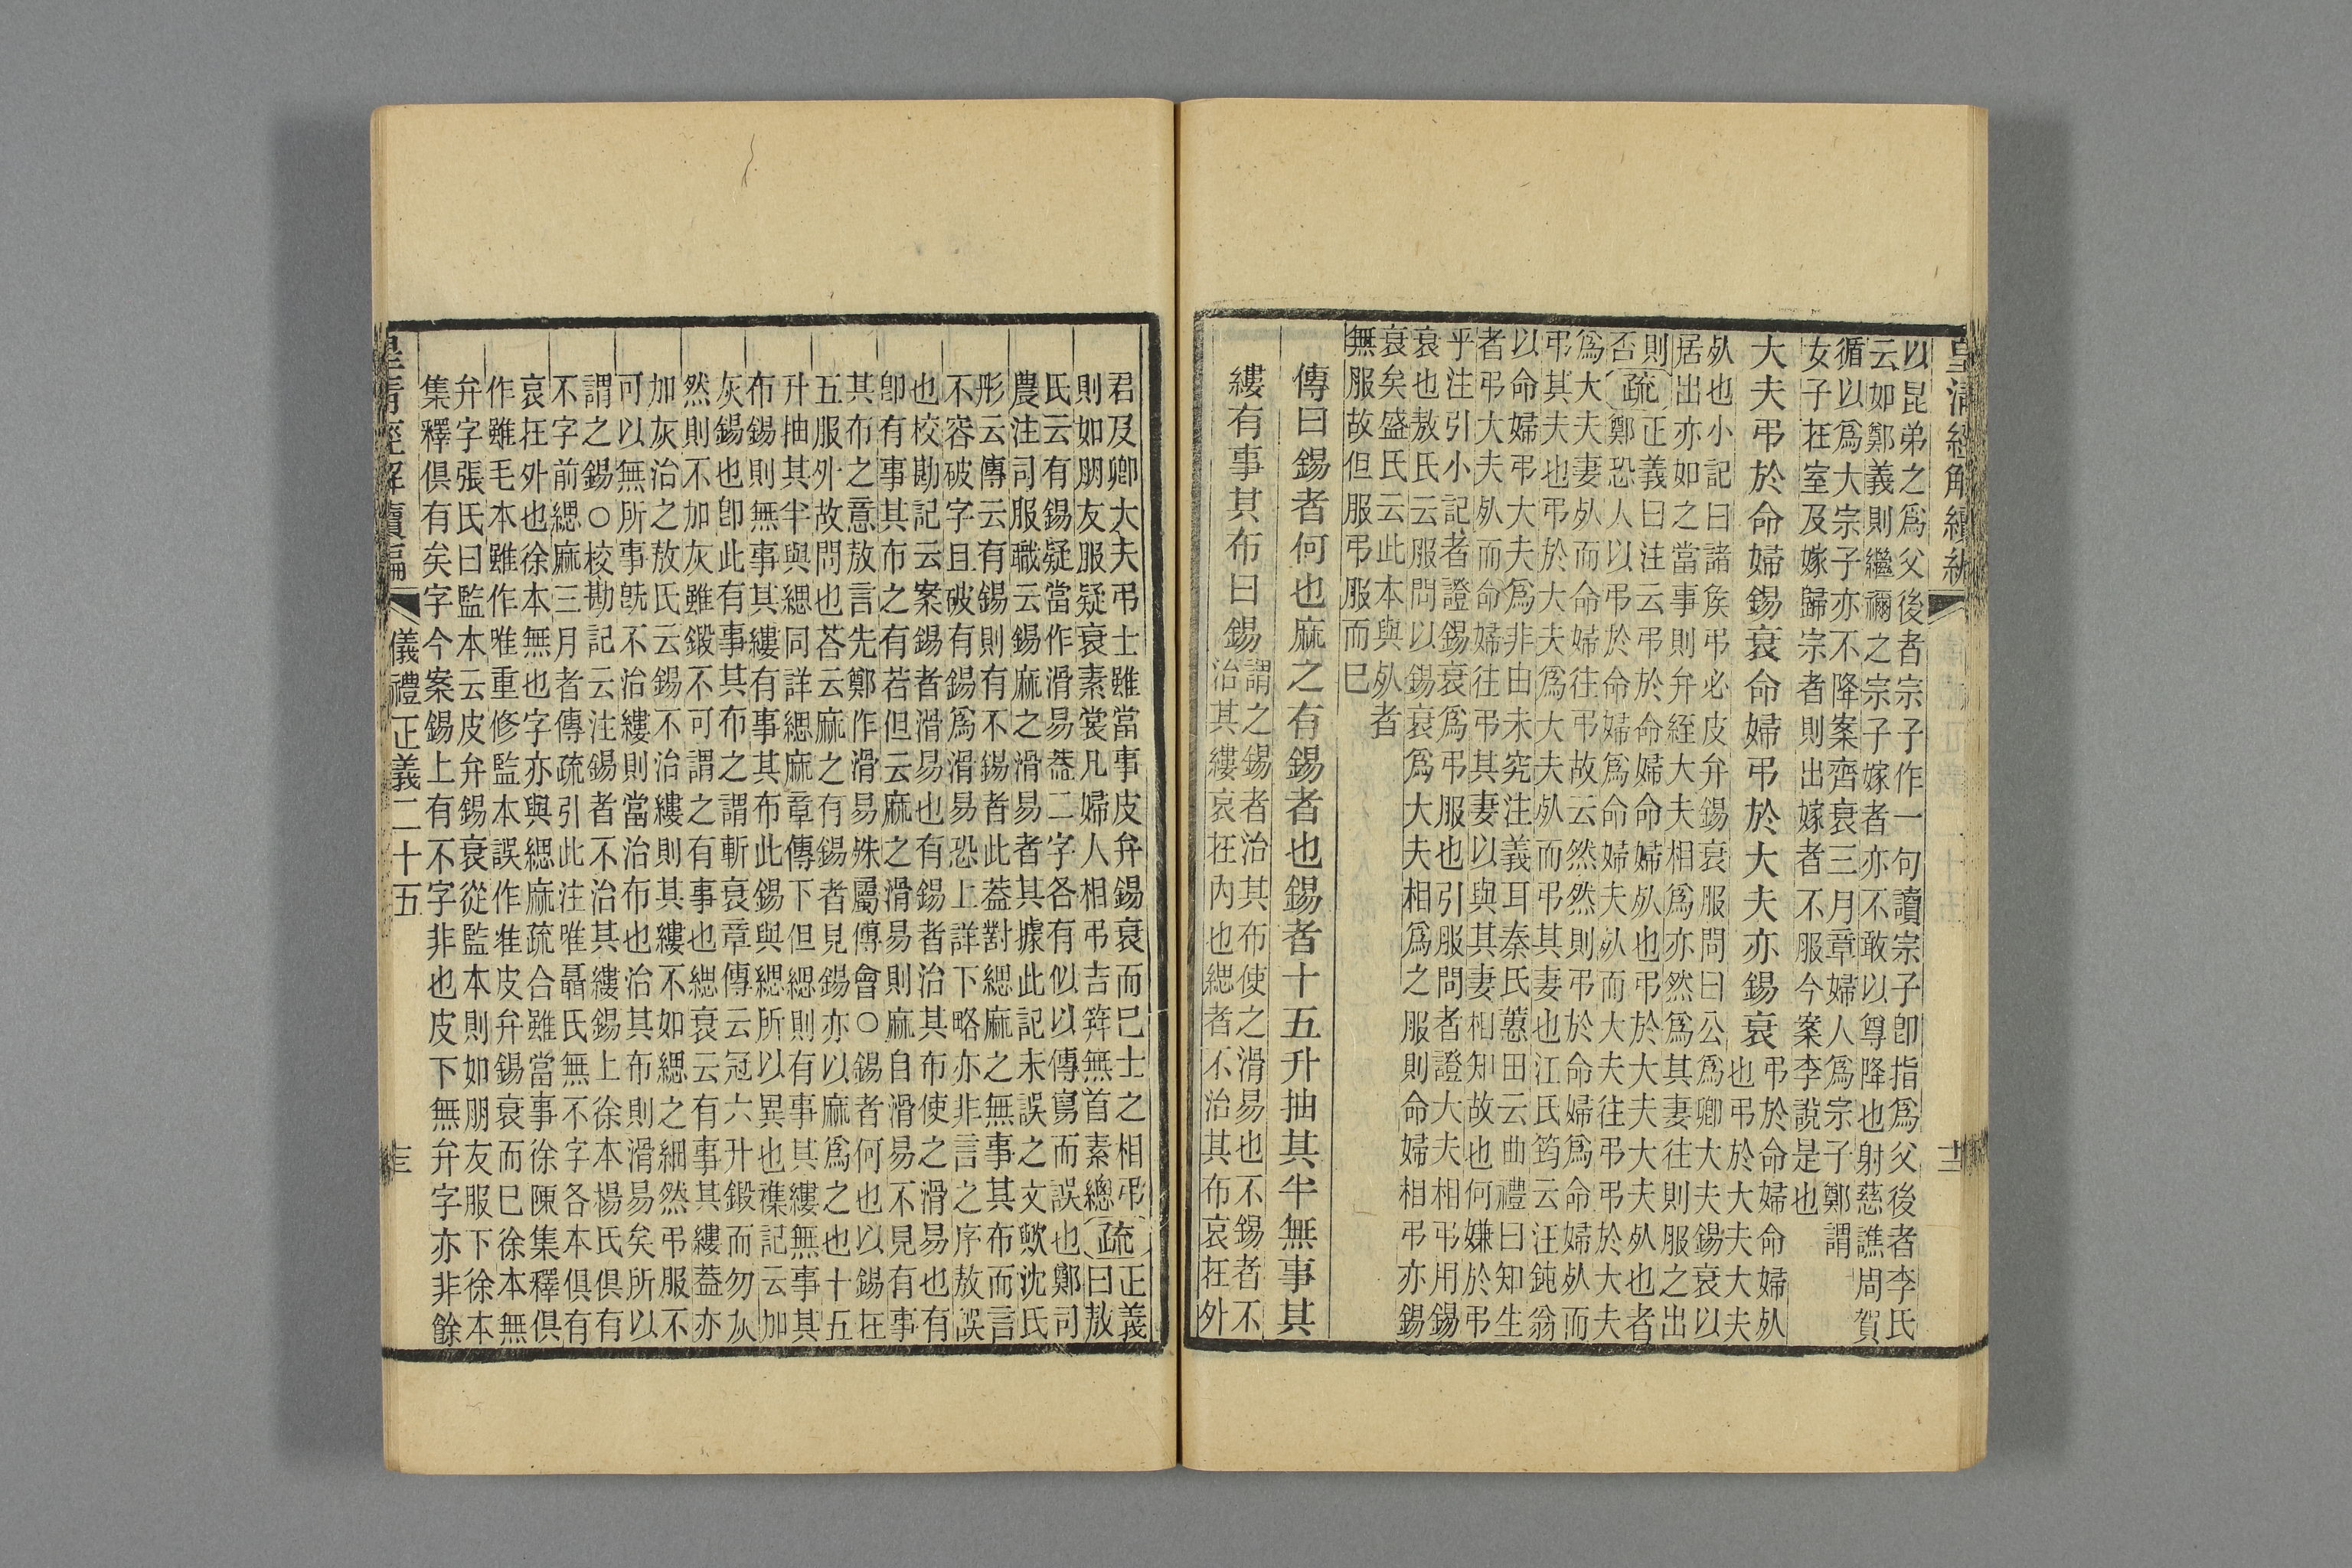 皇清經解續編
以昆弟之爲父後者宗子作一句讀宗子卽指爲父後者李氏
云如鄭義則繼禰之宗子嫁者亦不敢以尊降也射慈譙周賀
循以爲大宗子亦不降案齊衰三月章婦人爲宗子鄭謂
女子在室及嫁歸宗者則出嫁者不服今案李說是也
大夫弔於命婦錫衰命婦弔於大夫亦錫衰
弔於命婦命婦夘
也弔於大夫大夫
夘也小記曰諸矦弔必皮弁錫衰服問曰公爲卿大夫錫衰以
居出亦如之當事則弁絰大夫相爲亦然爲其妻往則服之出
則
否
疏
正義曰注云弔於命婦命婦夘也弔於大夫大夫夘也者
鄭恐人以弔於命婦爲命婦夫夘而大夫往弔於大夫
爲大夫妻夘而命婦往弔故云然然則弔於命婦爲命婦夘而
弔其夫也弔於大夫爲大夫夘而弔其妻也江氏筠云汪鈍翁
以命婦弔大夫爲非由未究注義耳秦氏蕙田云曲禮曰知生
者弔大夫夘而命婦往弔其妻以與其妻相知故也何嫌於弔
乎注引小記者證錫衰爲弔服也引服問者證大夫相弔用錫
衰也敖氏云服問以錫衰爲大夫相爲之服則命婦相弔亦錫
衰矣盛氏云此本與夘者
無服故但服弔服而已
傳曰錫者何也麻之有錫者也錫者十五升抽其半無事其
縷有事其布曰錫
謂之錫者治其布使之滑易也不錫者不
治其縷哀在內也緦者不治其布哀在外
君及卿大夫弔士雖當事皮弁錫衰而已士之相弔
則如朋友服疑衰素裳凡婦人相弔吉筓無首素總
疏
正義
曰敖
氏云有錫疑當作滑易葢二字各有似以傳寫而誤也鄭司
農注司服職云錫麻之滑易者其據此記未誤之文歟沈氏
彤云傳云有錫則有不錫者此葢對緦麻之無事其布而言
不容破字且破有錫爲滑易恐上詳下略亦非言之序敖誤
也校勘記云案錫者滑易也有錫者治其布使之滑易也有
卽有事其布之有若但云麻之滑易則麻自滑易不見有事
其布之意敖言先鄭作滑易殊屬傳會○錫者何也以錫在
五服外故問也荅云麻之有錫者見錫亦以麻爲之也十五
升抽其半與緦同詳緦麻章傳下但緦則有事其縷無事其
布錫則無事其縷有事其布此錫與緦所以異也襍記云加
灰錫也卽此有事其布之謂斬衰章傳云冠六升鍛而勿灰
然則不加灰雖鍛不可謂之有事也緦衰云有事其縷葢亦
加灰治之敖氏云錫不治縷則其縷不如緦之細然弔服不
可以無所事旣不治縷則當治布也治其布則滑易矣所以
謂之錫○校勘記云注錫者不治其縷錫上徐本楊氏俱有
不字前緦麻三月者傳疏引此注唯聶氏無不字各本俱有
哀在外也徐本無也字亦與緦麻疏合雖當事徐陳集釋俱
作雖毛本雖作唯重修監本誤作皮弁錫衰而已徐本無
弁字張氏曰監本云皮弁錫衰從監本則如朋友服下徐本
集釋俱有矣字今案錫上有不字非也皮下無弁字亦非餘
皇清經解續編 儀禮正義二十五